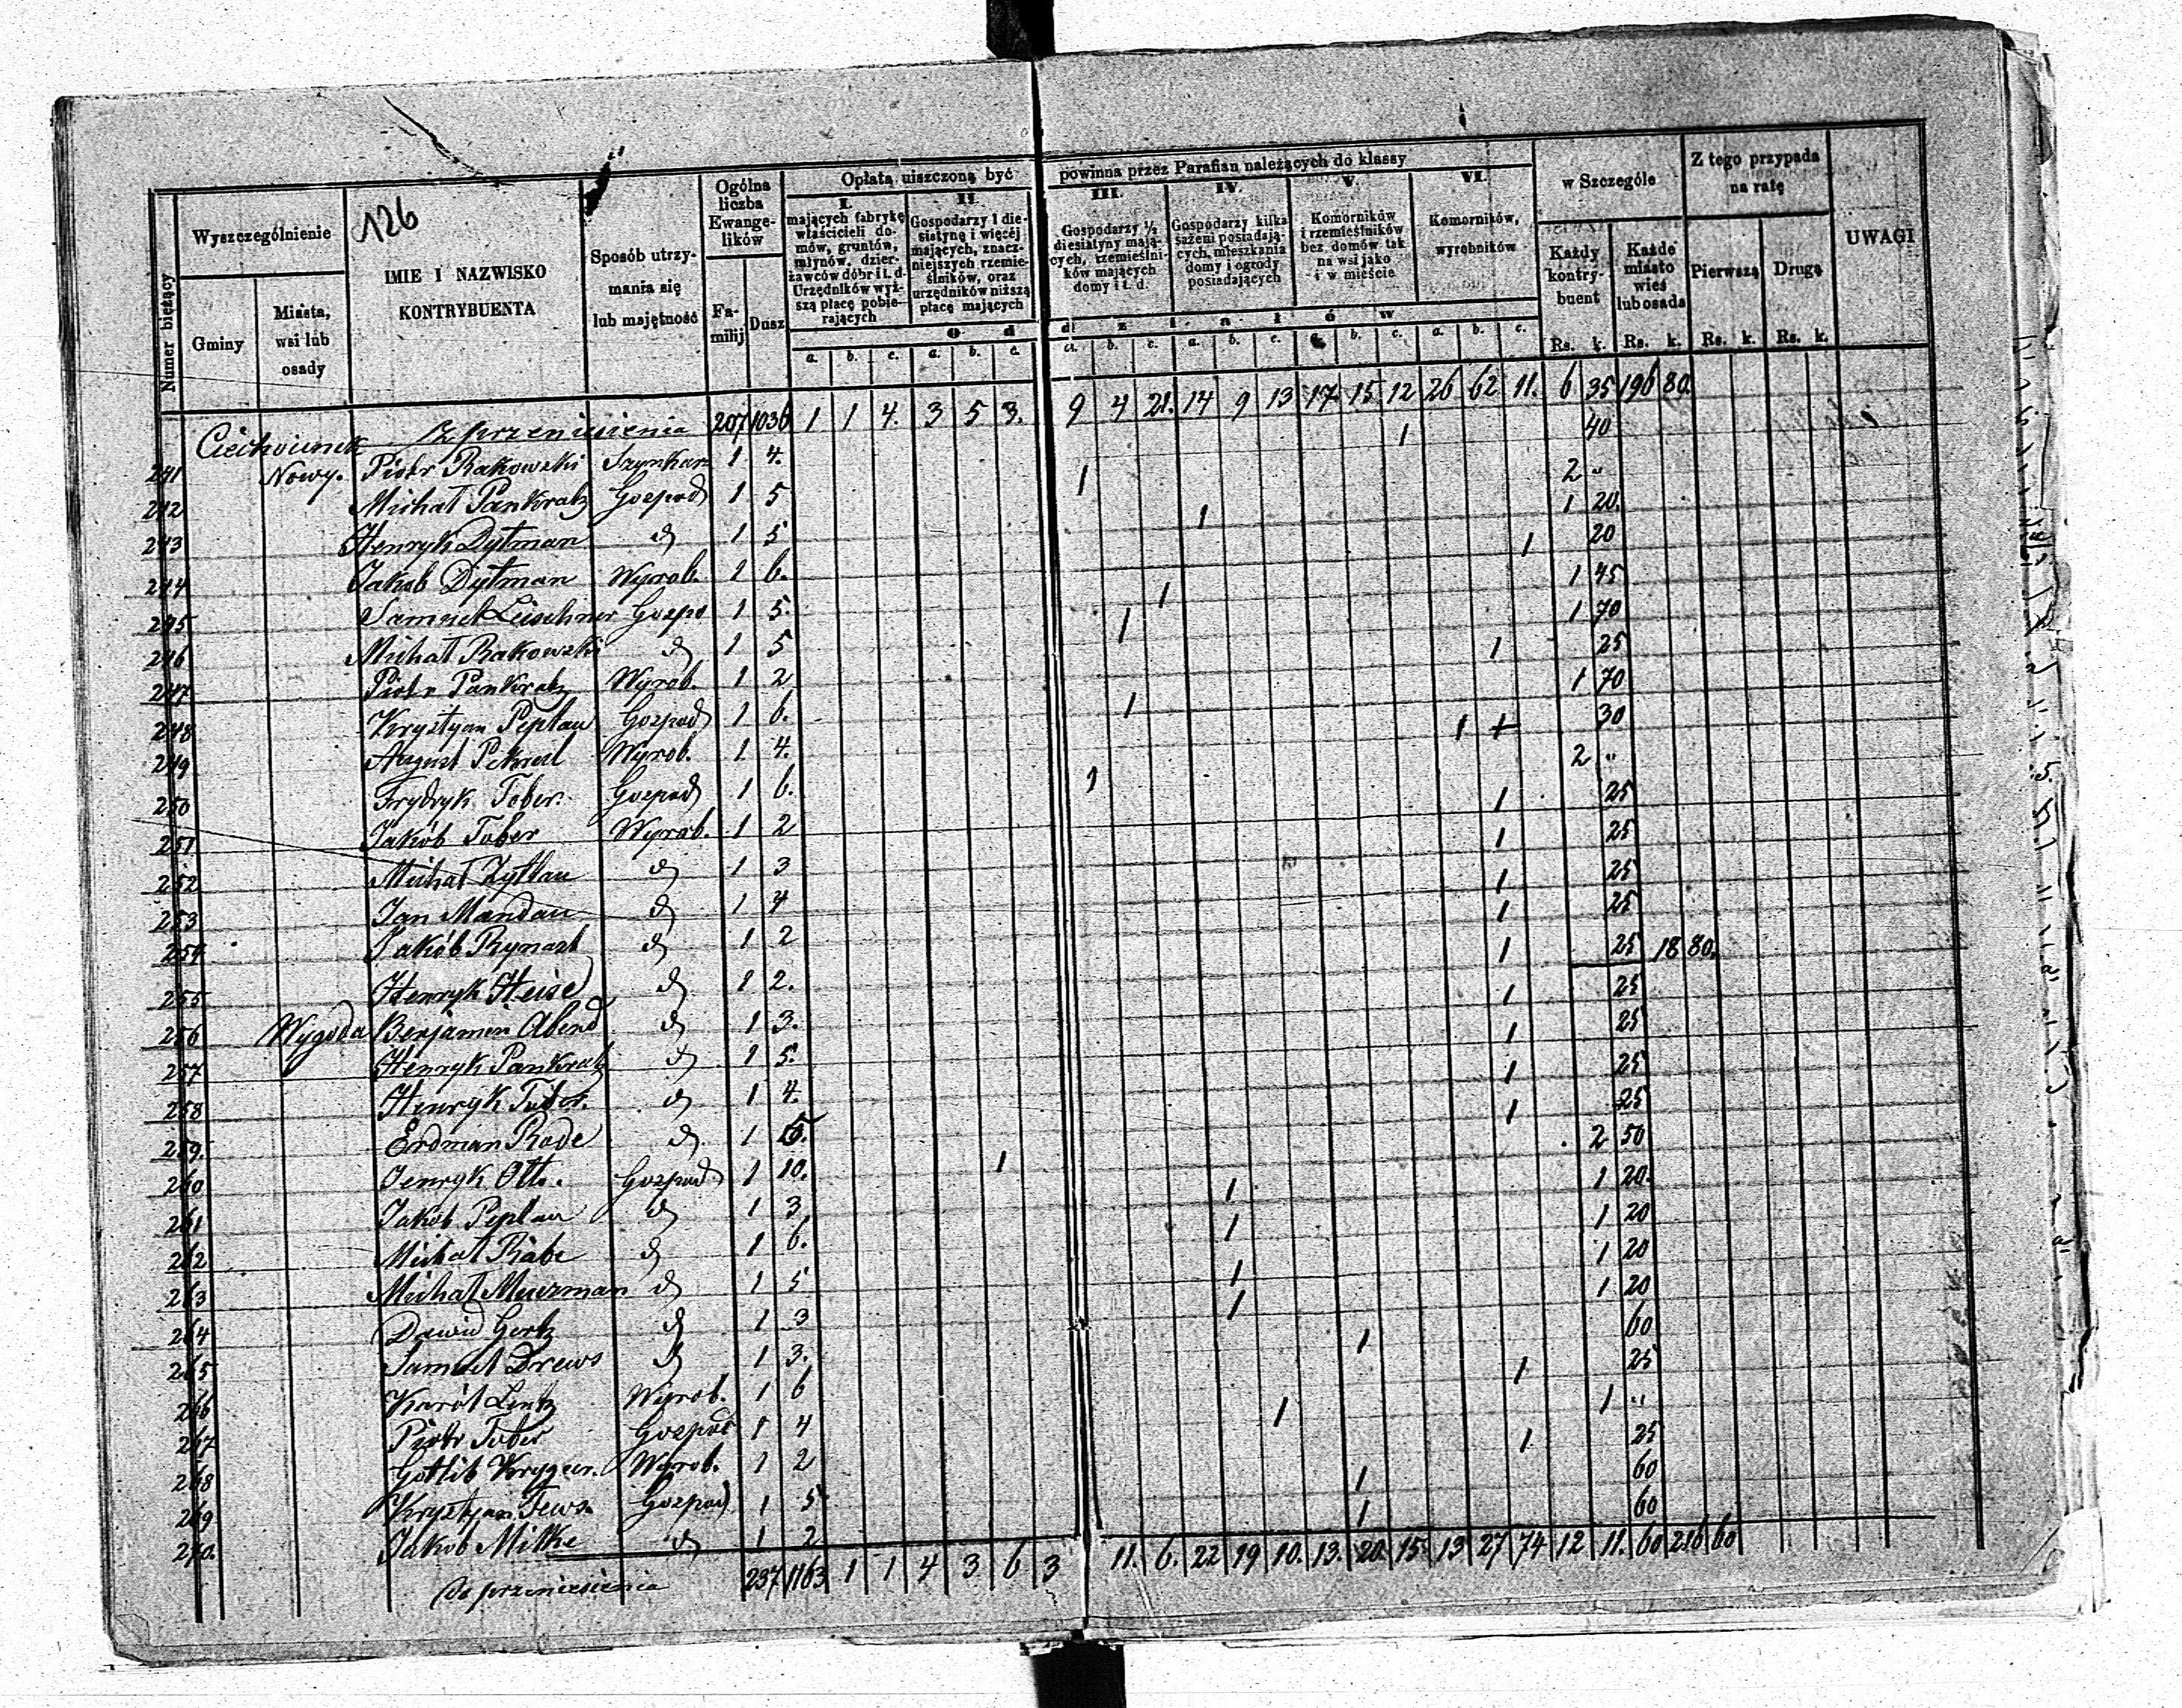 126
Numer bieżący
Wyszczególnienie
Gminy
Miasta, wsi lub osady
IMIE I NAZWISKO KONTRYBUENTA
Sposób utrzymania się lub majętność
Ogólna liczba Ewangelików
Familij
Dusz
Opłatą uiszczoną być powinna przez Parafian należących do klassy
I. mających fabrykę właścicieli domów, gruntów, młynów, dzierżawców dóbr i t. d. Urzędników wyższą płacę pobierających
II. Gospodarzy 1 diesiatynę i więcéj mających, znaczniejszych rzemieślników, oraz urzędników niższą płacę mających
III. Gospodarzy ½ diesiatyny mających, rzemieślników mających domy i t. d.
IV. Gospodarzy kilka sażeni posiadających, mieszkania domy i ogrody posiadających
V. Komorników i rzemieślników bez domów tak na wsi jako i w mieście
VI. Komorników, wyrobników
O d d z i a ł ó w
a. b. c. a. b. c. a. b. c. a. b. c. a. b. c. a. b. c.
w Szczególe
Każdy kontrybuent
Każde miasto wieś lub osada
Z tego przypada na ratę
Pierwszą
Drugą
UWAGI
Rs. k. Rs. k. Rs. k. Rs. k.
Z przeniesienia 207 1036 1 1 4. 3 5 3. 9 4 21. 14 9 13 17 15 12 26 62 11. 6 35 196 80.
Ciechocinek
241 Nowy. Piotr Rakowski Szynkarz 1 4. 1 40
242 Michał Pankratz Gospod 1 5 1 2 "
243 Henryk Dytman d 1 5 1 1 20.
244 Jakób Dytman Wyrob. 1 6. 1 20
245 Samuel Leischner Gospo 1 5. 1 1 45
246 Michał Rakowski d 1 5 1 1 70
247 Piotr Pankratz Wyrob. 1 2 1 25
248 Krysztyan Peplau Gospod 1 6. 1 1 70
249 August Wyrob. 1 4. 1 1 30
250 Frydryk Tober. Gospod 1 6. 1 2 "
251 Jakób Tober Wyrob. 1 2 1 25
252 Michał Zyttlau d 1 3 1 25
253 Jan Mandau d 1 4 1 25
254 Jakób Rynast d 1 2 1 25
255 Henryk Heise d 1 2. 1 25 18 80.
256 Wygoda Benjamin Abend d 1 3. 1 25
257 Henryk Pankratz d 1 5. 1 25
258 Henryk Tober. d 1 4. 1 25
259. Erdman Rode d 1 5. 1 25
260 Henryk Otto. Gospod 1 10. 1 2 50
261 Jakób Peplau d 1 3 1 1 20.
262 Michał Rabe d 1 6. 1 1 20
263 Michał Murzman d 1 5 1 1 20
264 Dawid Gertz d 1 3 1 1 20
265 Samuel Drews d 1 3. 1 60
266 Karól Lentz Wyrob. 1 6 1 25
267 Piotr Tober Gospod 1 4 1 1 "
268 Gottlib Kryger. Wyrob. 1 2 1 25
269 Krysztyan Tews. Gospod 1 5 1 60
270. Jakób Milke d 1 2 1 60
Do przeniesienia 237 1163 1 1 4 3 6 3 11. 6. 22 19 10. 13. 20. 15 13 27 74 12 11. 60 216 60